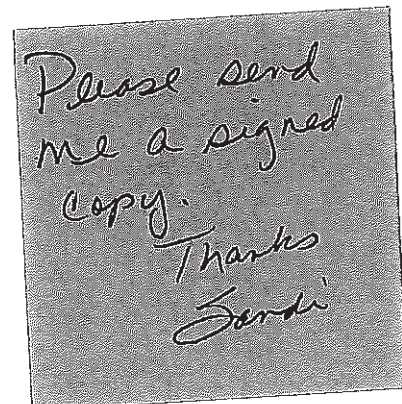 Please send
me a signed
copy.
Thanks
Sandi